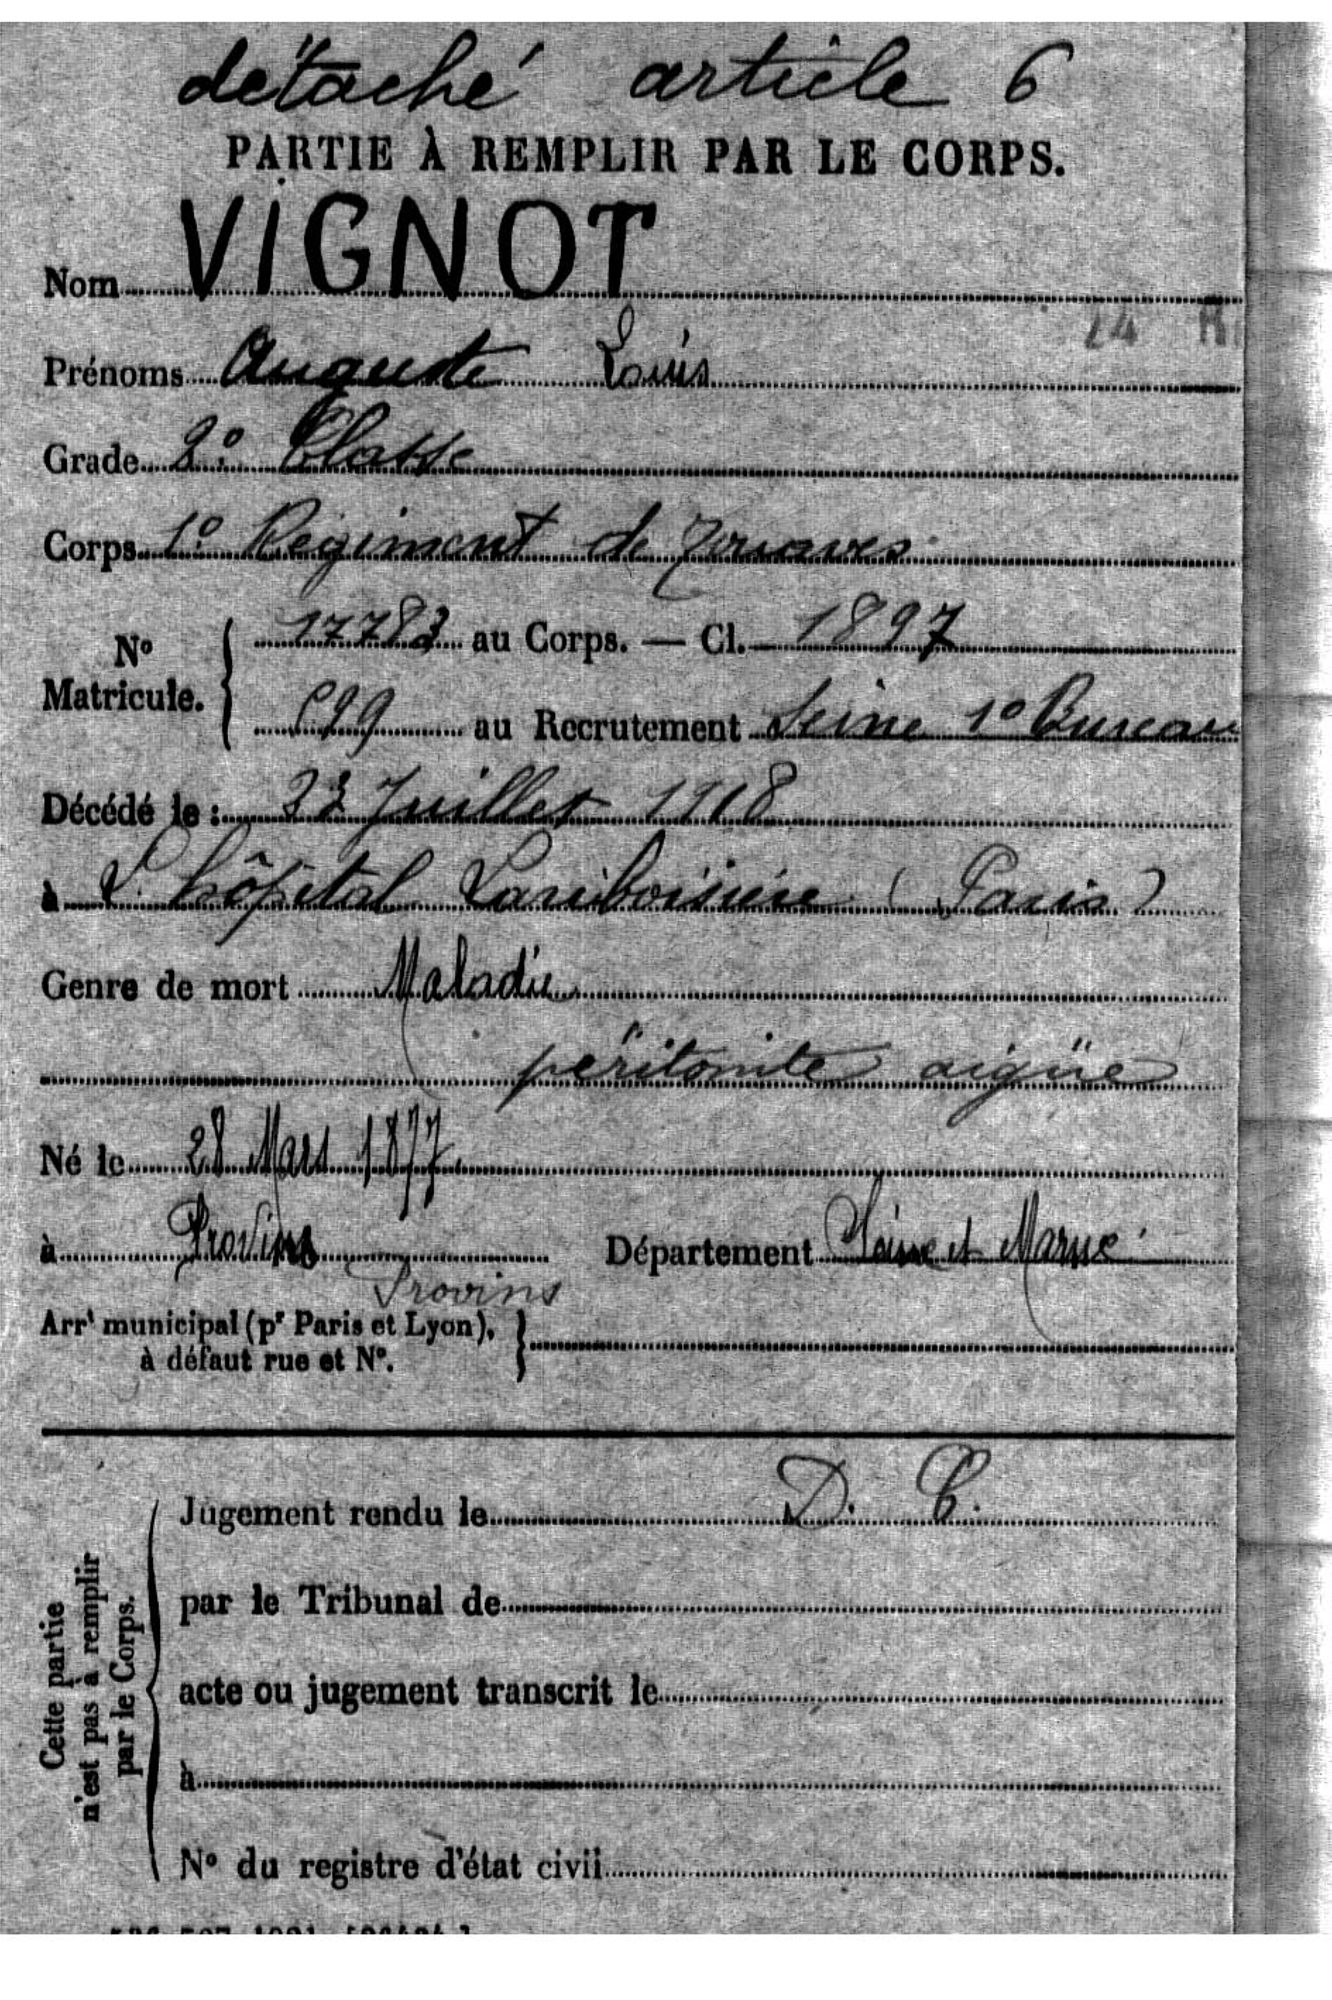 détaché article 6
PARTIE À REMPLIR PAR LE CORPS.
Nom VIGNOT
Prénoms Auguste Louis
24
Grade 2e Classe
Corps 1o Régiment de Zouaves
No Matricule. { 17783 au Corps. — Cl. 1897
au Recrutement Seine 1o Bureau
Décédé le : 23 Juillet 1918
à L'hôpital Lariboisière (Paris)
Genre de mort Maladie
péritonite aigüe
Né le 28 Mars 1877
à Provins Département Seine et Marne
Provins
Arrt municipal (pr Paris et Lyon), à défaut rue et No. }
Cette partie n'est pas à remplir par le Corps.
Jugement rendu le D. C.
par le Tribunal de
acte ou jugement transcrit le
à
No du registre d'état civil